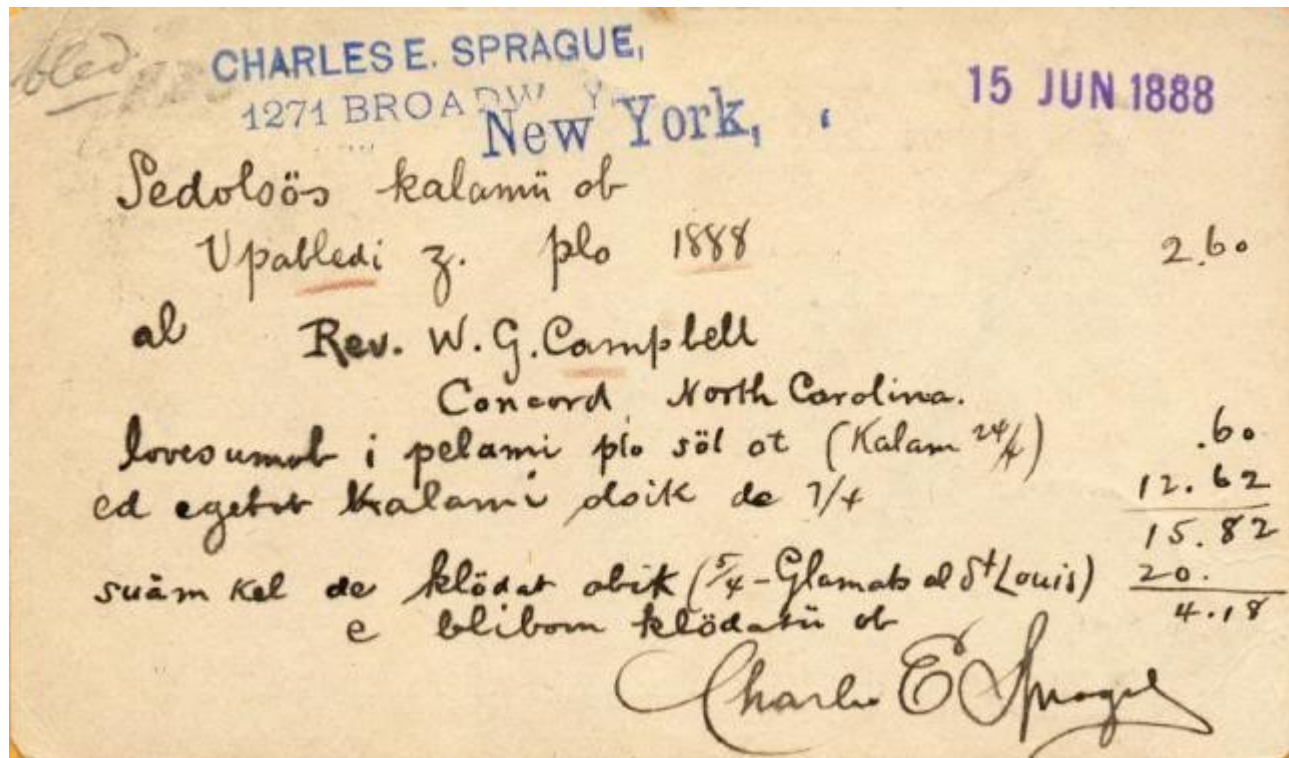 bled
CHARLES E. SPRAGUE,
15 JUN 1888
1271 BROADW Y
New York,
Sedolsös kalamü ob
Vpabledi z. plo 1888 2.60
al Rev. W. G. Campbell
Concord, North Carolina.
lovesumob i pelami plo söl ot (Kalam 24/4) .60
ed egetob kalami olsik de 7/4 12.62
15.82
suäm kel de klödat obik (5/4 - Glamats al St Louis) 20.
e blibom klödatü ob 4.18
Charles E Sprague